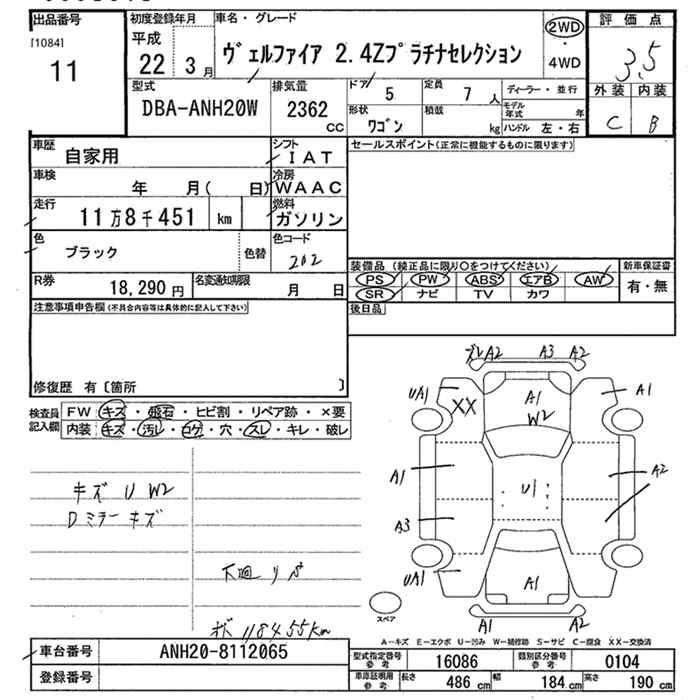 出品番号
[1084]
11
初度登録年月
平成
22 3月
車名・グレード
ヴェルファイア 2.4Zプラチナセレクション
2WD
・
4WD
評価点
3.5
外装 内装
C B
型式
DBA-ANH20W
排気量
2362
CC
ドア
5
定員
7 人
形状
ワゴン
積載
kg
ディーラー・並行
モデル年式 年
ハンドル 左・右
車歴
自家用
シフト
IAT
車検
年 月( 日)
冷房
WAAC
走行
11万8千451 km
燃料
ガソリン
色
ブラック
色替
色コード
202
R券
18,290円
名変通知期限
月 日
セールスポイント(正常に機能するものに限ります)
装備品 (純正品に限り○をつけてください)
PS PW ABS エアB AW
SR ナビ TV カワ
新車保証書
有・無
後日品
注意事項申告欄(不具合内容等は具体的に記入して下さい)
修復歴 有〔箇所 〕
検査員記入欄
FW キズ・飛石・ヒビ割・リペア跡・×要
内装 キズ・汚レ・コゲ・穴・スレ・キレ・破レ
キズ U W2
Dミラー キズ
下廻リ サ
118455km
ズレ A2 A3 A2
UA1 XX A1 W2 A1
A1 U1 A2
A3
UA1 A1
A1 A2
スペア
A-キズ E-エクボ U-凹み W-補修跡 S-サビ C-腐食 XX-交換済
車台番号 ANH20-8112065
登録番号
型式指定番号 参考 16086
類別区分番号 参考 0104
車庫証明用 参考 長さ 486cm 幅 184cm 高さ 190cm